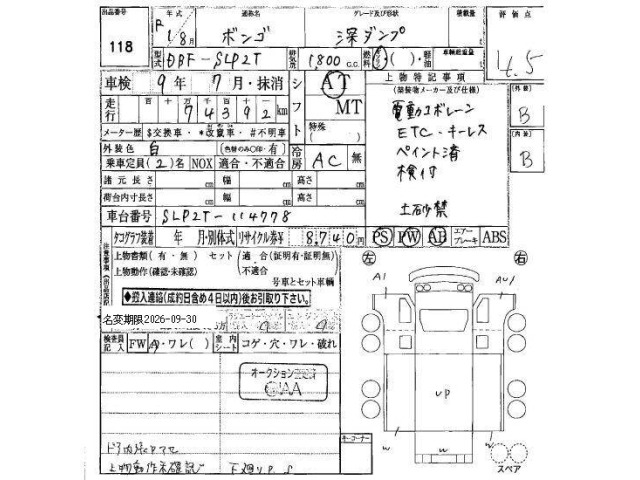 出品番号
118
年式
R 1/8月
通称名
ボンゴ
グレード及び形状
深ダンプ
積載量
t
評価点
4.5
型式
DBF-SLP2T
排気量
1,800 c.c.
燃料
( )・軽油
車輌総重量
t
車検 9年 7月・抹消
シフト
AT
MT
特殊
( )
上物特記事項
(架装物メーカー及び仕様)
電動コボレーン
ETC・キーレス
ペイント済
検付
土砂禁
外装
B
内装
B
走行
百 十 万 千 百 十
74392km
メーター歴 $交換車・*改竄車・#不明車
外装色 白 (色替のみ○印・有)
冷房
AC 無
乗車定員(2)名 NOX 適合・不適合
諸元長さ cm 幅 cm 高さ cm
荷台内寸長さ cm 幅 cm 高さ cm
車台番号 SLP2T-114778
タコグラフ装着 年 月・別体式 リサイクル券¥ 8,740円
PS PW AB エアーブレーキ ABS
注意事項
上物書類(有・無) セット(適合(証明有・証明無)
上物動作(確認・未確認) 不適合
号車とセット車輌
◆搬入連絡(成約日含め4日以内)後お引取り下さい。
名変期限2026-09-30
検査員記入
FW A・ワレ( )
室内シート
コゲ・穴・ワレ・破れ
オークション
CAA
ドア内張アセ
上物動作未確認
下廻りP.S
キーコーナー
左
右
A1
AU1
UP
UP
w
w
スペア